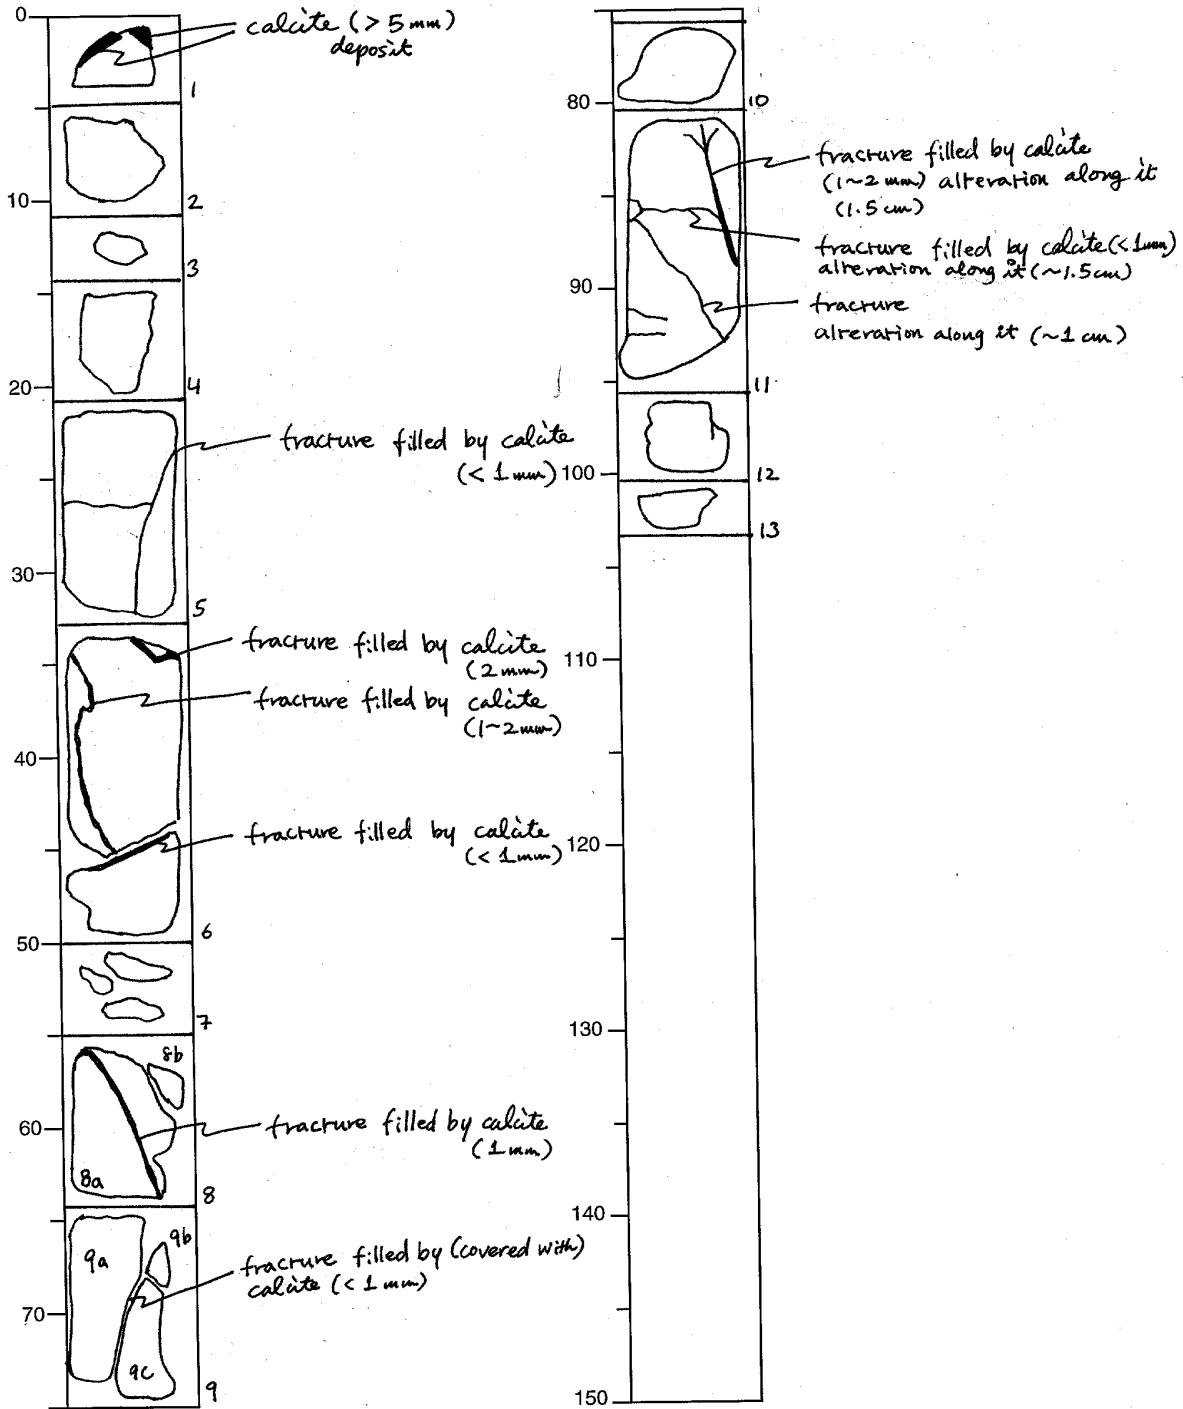 0
calcite (> 5 mm)
deposit
1
2
10
3
4
20
fracture filled by calcite
(< 1 mm)
30
5
fracture filled by calcite
(2 mm)
fracture filled by calcite
(1~2 mm)
40
fracture filled by calcite
(< 1 mm)
6
50
7
8b
60
fracture filled by calcite
(1 mm)
8a
8
9b
9a
fracture filled by (covered with)
calcite (< 1 mm)
70
9c
9
80
10
fracture filled by calcite
(1~2 mm) alteration along it
(1.5 cm)
fracture filled by calcite (< 1 mm)
alteration along it (~1.5 cm)
90
fracture
alteration along it (~1 cm)
11
100
12
13
110
120
130
140
150